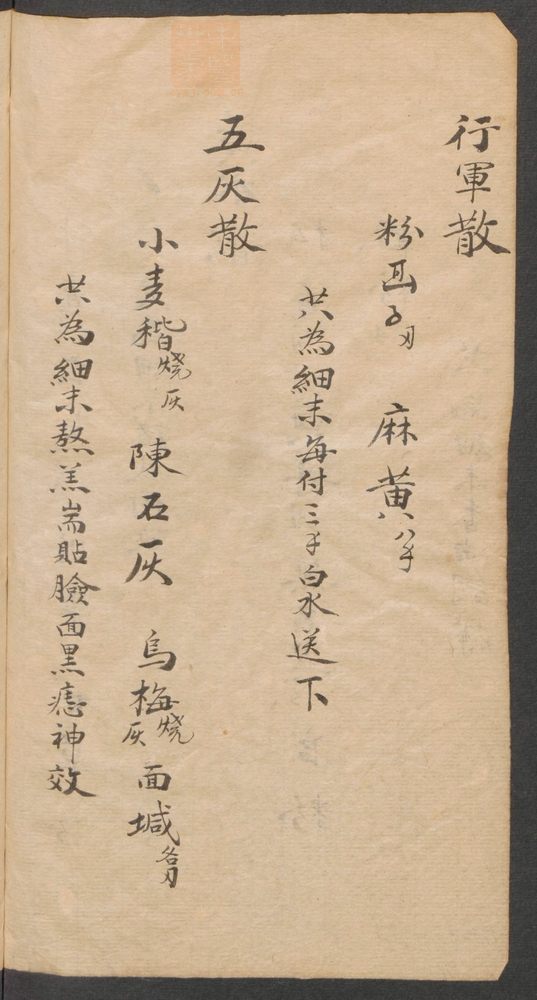 行軍散
粉 麻黄八
共為細末每付三 白水送下
五灰散
小麦稭烧灰 陳石灰 烏梅烧灰 面堿各
共為細末熬羔耑貼臉面黒痣神效